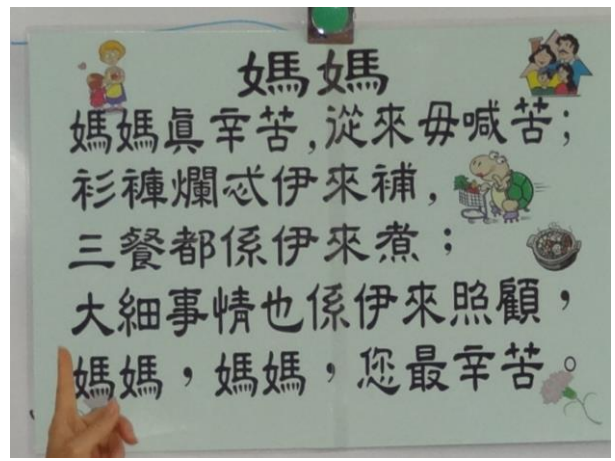 媽媽
媽媽真辛苦,從來毋喊苦;
衫褲爛忒伊來補,
三餐都係伊來煮;
大細事情也係伊來照顧,
媽媽,媽媽,您最辛苦。